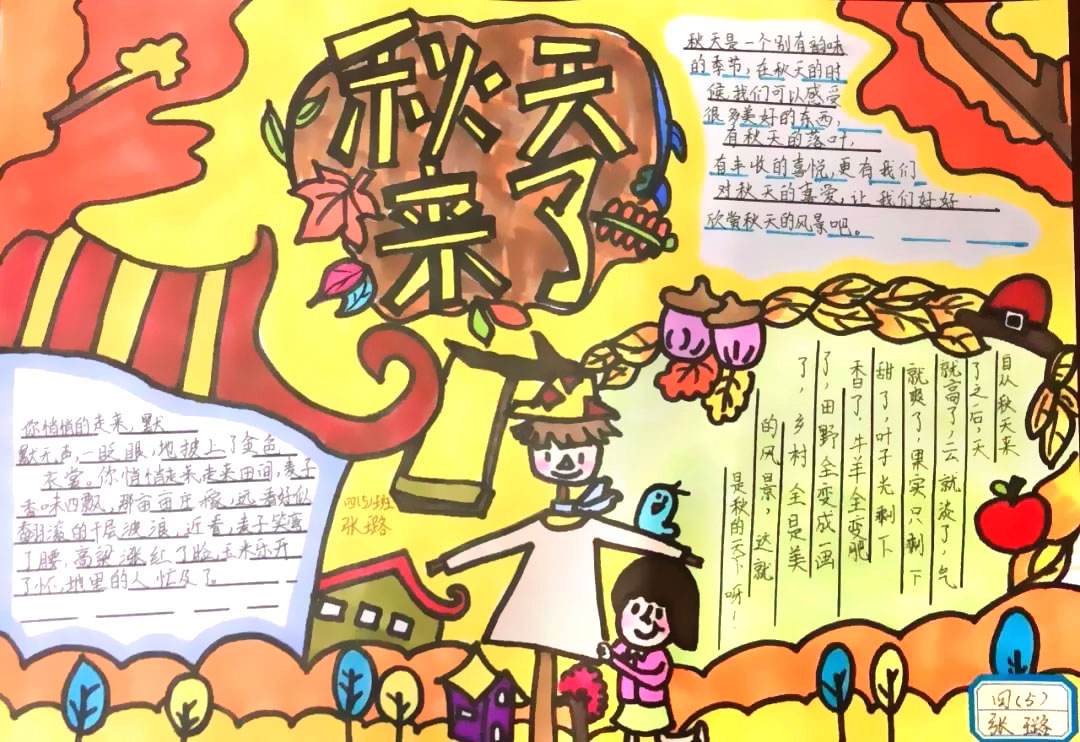 秋天
来了
秋天是一个别有韵味
的季节，在秋天的时
候，我们可以感受
很多美好的东西，
有秋天的落叶，
有丰收的喜悦，更有我们
对秋天的喜爱，让我们好好
欣赏秋天的风景吧。
你悄悄的走来，默
默无声，一眨眼，地披上了金色
衣裳。你悄悄走来走来田间，麦子
香味四飘，那亩亩庄稼，远看好似
翻滚的千层波浪，近看，麦子笑弯
了腰，高粱涨红了脸，玉米乐开
了怀，地里的人忙及了。
四(5)班
张璐
自从秋天来
了之后，天
就高了，云就淡了，气
就爽了，果实只剩下
甜了，叶子光剩下
香了，牛羊全变肥
了，田野全变成画
了，乡村全是美
的风景，这就
是秋的天下呀！
四(5)
张璐